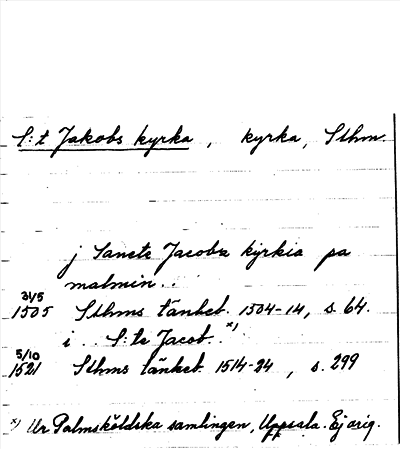 S:t Jakobs kyrka, kyrka, Sthm.
j Sancte Jacobx kyrkia pa
malmin..
31/5
1505 Sthms tänkeb. 1504-14, s. 64.
i .. S:te Jacob.. x)
5/10
1521 Sthms tänkeb. 1514-24, s. 299
x) Ur Palmsköldska samlingen, Uppsala. Ej orig.